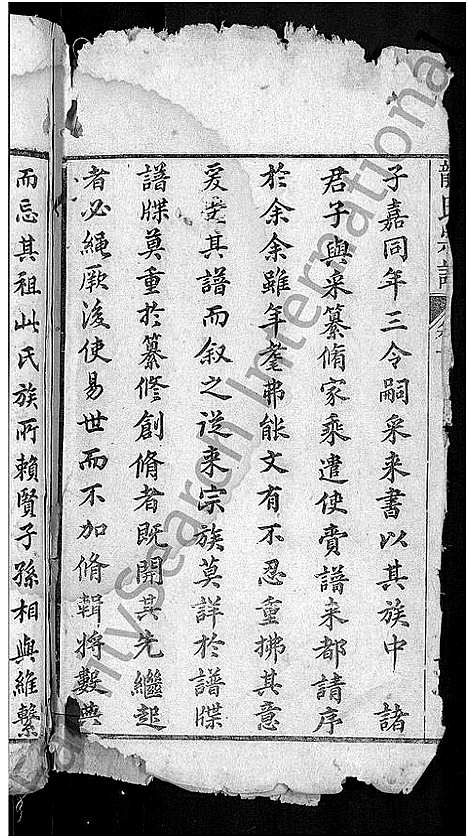 子嘉同年三令嗣采来書以其族中　諸
君子與采纂脩家乘遣使賫譜来都請序
於余余雖年耄弗能文有不忍重拂其意
爰其譜而叙之从来宗族莫詳於譜牒
譜牒莫重於纂修創脩者既開其先繼起
者必繩厥後使易世而不加脩輯將數典
而忘其祖此氏族所賴賢子孫相與維繫
龍氏宗譜
FamilySearch International